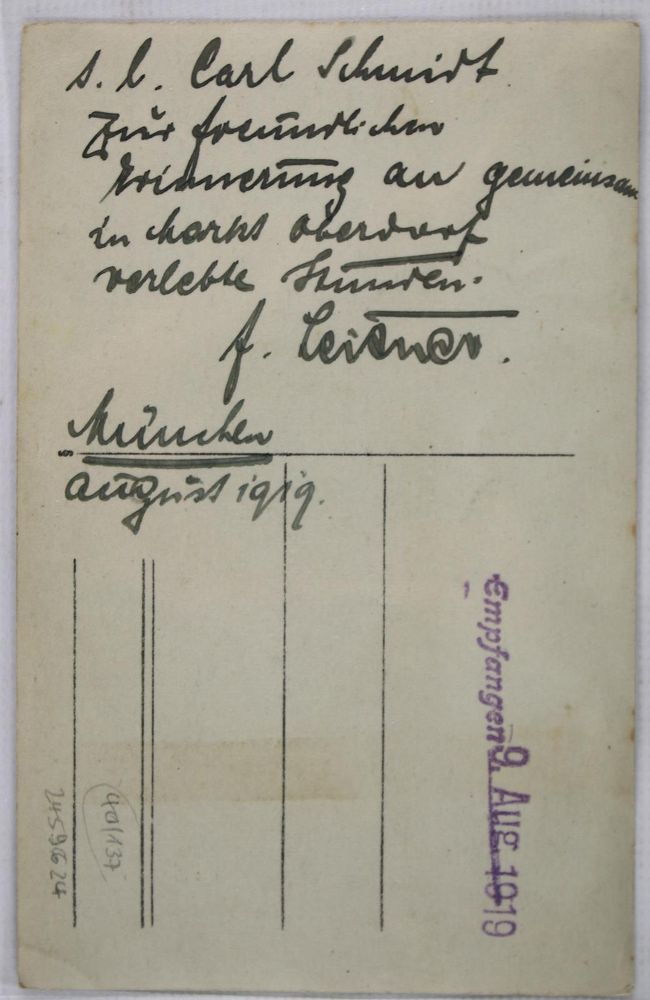 s. l. Carl Schmidt
Zur freundlichen
Erinnerung an gemeinsam
in Markt Oberdorf
verlebte Stunden.
f. Leitner.
München
August 1919.
Empfangen 9. Aug. 1919
40/137
2459624